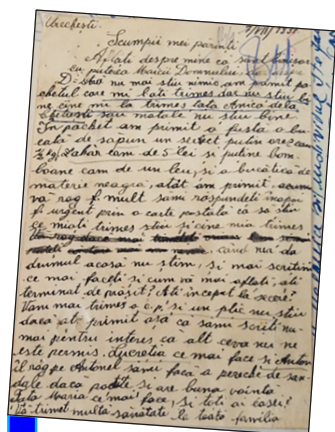 Urechești.
Scumpii mei parinți
Aflați despre mine ca sunt sanatos
cu puterea Maicii Domnului.
D. alta nu mai stiu nimic am primit pa
chetul care mi lati trimes dar nu stiu
ne cine mi la trimes tata Anica dela
sau matale nu stiu bine.
In pachet am primit o fusta o bu
cată de sapun un sec puțin orez cam
1/2 kg Zahar cam de 5 lei si putine bom
boane cam de un leu, si o bucățica de
materie neagra, atât am primit, acum
vă rog f. mult sami rospundeti inapoi
f. urgent prin o carte postală ca sa stiu
ce miați trimes stiu și cine mia trimes.
când nia da
drumul acasa nu știm, si mai scritimi
ce mai faceți si cum vă mai aflați, ati
terminat de prășit? Ati inceput la secere?
Vam mai trimes o c.p. si un plic nu stiu
daca ati primit asa ca sami scriti nu-
mai pentru interes ca alt ceva nu ne
este permis. Lucretia ce mai face si Anton
il rog pe Antonel sami faca o pereche de san-
dale dacă poate si are buna voința
Tata Maria ce mai face, si toti ai casei?
Vă trimet multa sanatate la toata familia